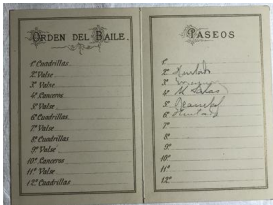 ORDEN DEL BAILE.
1º Cuadrillas
2º Valse
3º Valse
4º Lanceros
5º Valse
6º Cuadrillas
7º Valse
8º Cuadrillas
9º Valse
10º Lanceros
11º Valse
12º Cuadrillas
PASEOS
1º
2º
3º
4º
5º
6º
7º
8º
9º
10º
11º
12º